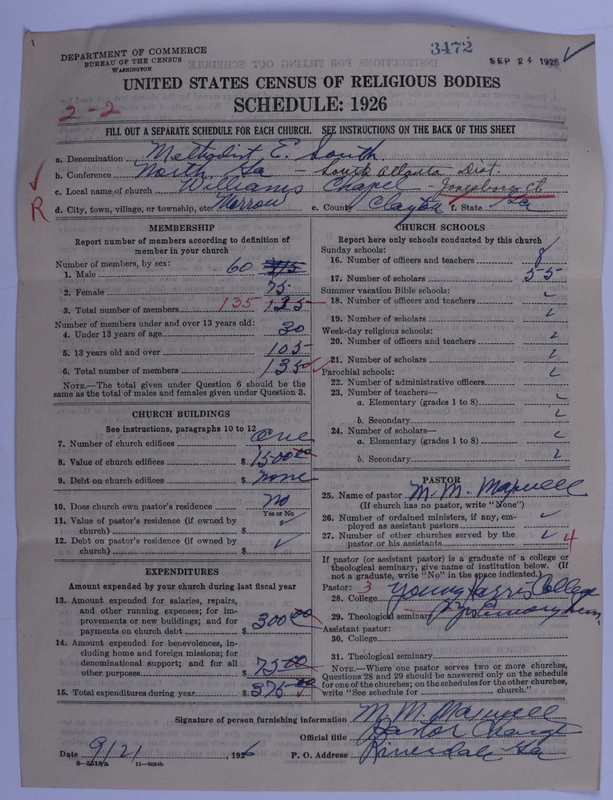 3472
SEP 24 1926
DEPARTMENT OF COMMERCE
BUREAU OF THE CENSUS
WASHINGTON
UNITED STATES CENSUS OF RELIGIOUS BODIES
SCHEDULE: 1926
2-2
FILL OUT A SEPARATE SCHEDULE FOR EACH CHURCH. SEE INSTRUCTIONS ON THE BACK OF THIS SHEET
a. Denomination Methodist E. South
b. Conference North Ga - South Atlanta Dist.
c. Local name of church Williams Chapel - Jonesboro Ct.
R
d. City, town, village, or township, etc. Morrow e. County Clayton f. State Ga
MEMBERSHIP
Report number of members according to definition of member in your church
Number of members, by sex:
1. Male 60
2. Female 75
3. Total number of members 135 135
Number of members under and over 13 years old:
4. Under 13 years of age 30
5. 13 years old and over 105
6. Total number of members 135
NOTE.—The total given under Question 6 should be the same as the total of males and females given under Question 3.
CHURCH BUILDINGS
See instructions, paragraphs 10 to 12
7. Number of church edifices one
8. Value of church edifices $ 1500.00
9. Debt on church edifices $ none
10. Does church own pastor's residence? no
Yes or No
11. Value of pastor's residence (if owned by church) $
12. Debt on pastor's residence (if owned by church) $
EXPENDITURES
Amount expended by your church during last fiscal year
13. Amount expended for salaries, repairs, and other running expenses; for improvements or new buildings; and for payments on church debt $ 300.00
14. Amount expended for benevolences, including home and foreign missions; for denominational support; and for all other purposes $ 75.00
15. Total expenditures during year $ 375.00
CHURCH SCHOOLS
Report here only schools conducted by this church
Sunday schools:
16. Number of officers and teachers 8
17. Number of scholars 55
Summer vacation Bible schools:
18. Number of officers and teachers
19. Number of scholars
Week-day religious schools:
20. Number of officers and teachers
21. Number of scholars
Parochial schools:
22. Number of administrative officers
23. Number of teachers—
a. Elementary (grades 1 to 8)
b. Secondary
24. Number of scholars—
a. Elementary (grades 1 to 8)
b. Secondary
PASTOR
25. Name of pastor M. M. Maxwell
(If church has no pastor, write "None")
26. Number of ordained ministers, if any, employed as assistant pastors
27. Number of other churches served by the pastor or his assistants 4
If pastor (or assistant pastor) is a graduate of a college or theological seminary, give name of institution below. (If not a graduate, write "No" in the space indicated.)
Pastor: 3
28. College Young Harris College
29. Theological seminary
Assistant pastor:
30. College
31. Theological seminary
NOTE.—Where one pastor serves two or more churches, Questions 28 and 29 should be answered only on the schedule for one of the churches; on the schedules for the other churches, write "See schedule for church."
Signature of person furnishing information M. M. Maxwell
Official title Pastor Charge
Date 9/21, 1926 P. O. Address Riverdale Ga